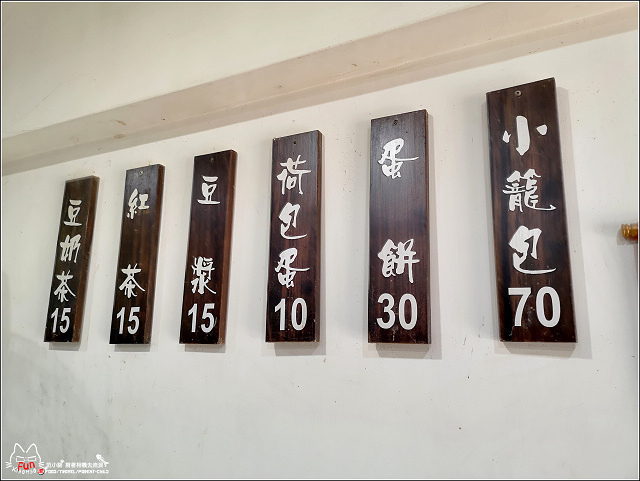 小籠包 70
蛋餅 30
荷包蛋 10
豆漿 15
紅茶 15
豆奶茶 15
Fun
FOOD/TRAVEL/PARENT-CHILD